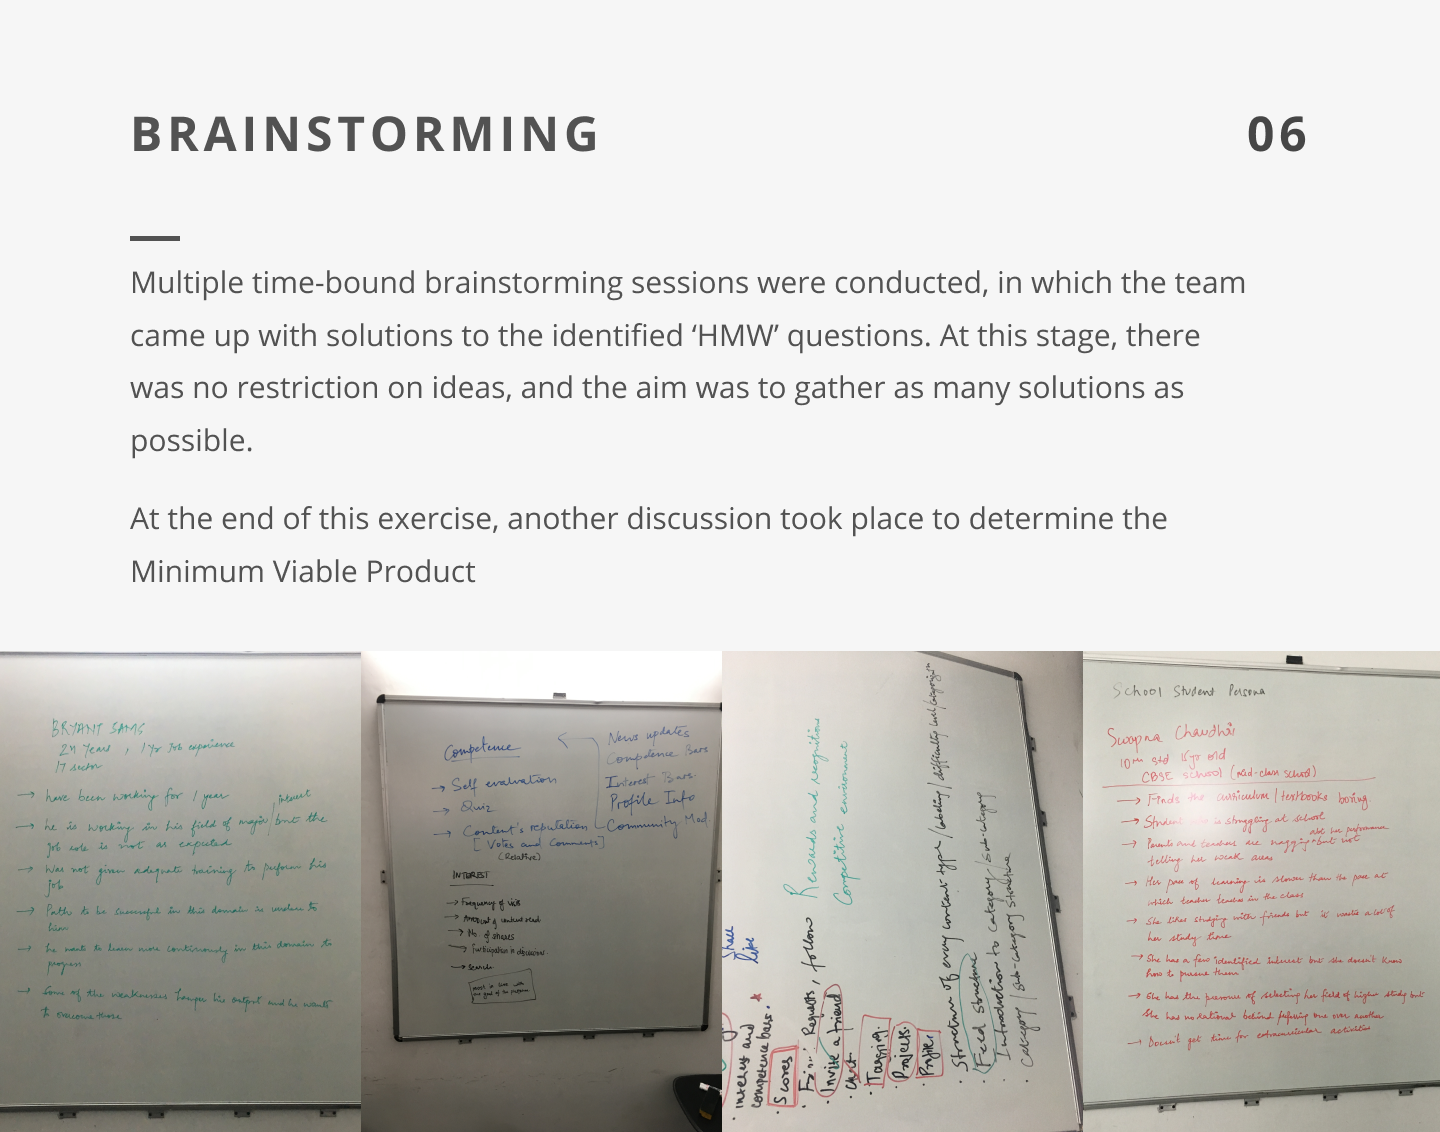 BRAINSTORMING
06
Multiple time-bound brainstorming sessions were conducted, in which the team
came up with solutions to the identified ‘HMW’ questions. At this stage, there
was no restriction on ideas, and the aim was to gather as many solutions as
possible.
At the end of this exercise, another discussion took place to determine the
Minimum Viable Product
BRYANT SAMS
24 years, 1 yr Job experience
17 sector
→ have been working for 1 year
interest
→ he is working in his field of major but the
job role is not as expected
→ Was not given adequate training to perform his
job
→ Path to be successful in this domain is unclear to
him
→ he wants to learn more continuously in this domain to
progress
→ Some of the weaknesses hamper his output and he wants
to overcome those
Competence
→ Self evaluation
→ Quiz
→ Content's reputation
[Votes and Comments]
(Relative)
News updates
Competence Bars
Interest Bars.
Profile Info
Community Mod.
INTEREST
→ Frequency of visit
→ Amount of content read
→ No. of shares
→ Participation in discussions.
→ Search
Share
like
Rewards and recognition
Competitive environment
· interest and
competence bars.
· Scores
Requests, follow
· Invite a friend
· Chat
· Tagging.
· Projects.
· Profile
· Structure of every content type / labeling / difficulty level / categorization
· Field structure
· Introduction to category / sub-category
· Category / sub-category structure
School Student Persona
Swapna Chaudhri
10th std 15 yr old
CBSE school (mid-class school)
→ Finds the curriculum / textbooks boring
→ Student is struggling at school
abt her performance
→ Parents and teachers are nagging but not
telling her weak areas
→ Her pace of learning is slower than the pace at
which teacher teaches in the class
→ She likes studying with friends but it wastes a lot of
her study time
→ She has a few identified interest but she doesn't know
how to pursue them
→ She has the pressure of selecting her field of higher study but
she has no rational behind preferring one over another
→ Doesn't get time for extracurricular activities